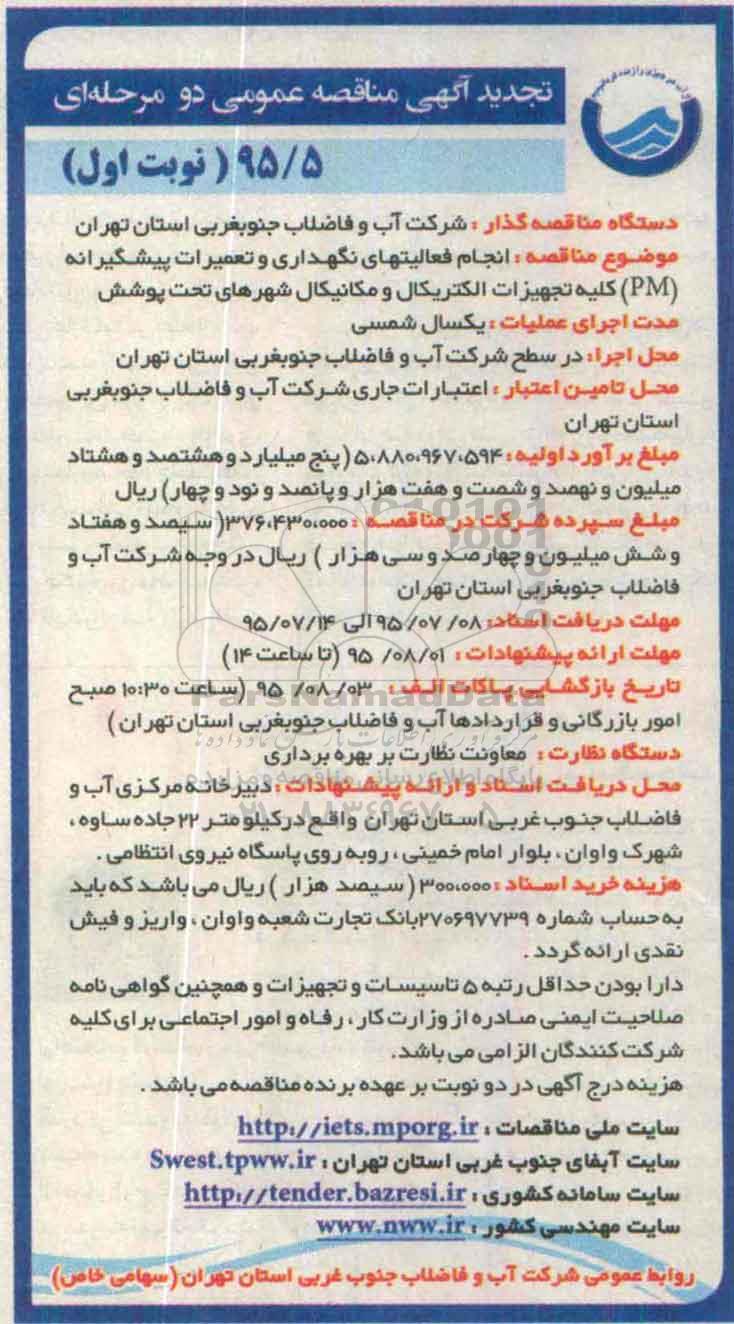 تجدید آگهی مناقصه عمومی دو مرحله‌ای
۹۵/۵ ( نوبت اول)
دستگاه مناقصه گذار : شرکت آب و فاضلاب جنوبغربی استان تهران
موضوع مناقصه : انجام فعالیتهای نگهداری و تعمیرات پیشگیرانه
(PM) کلیه تجهیزات الکتریکال و مکانیکال شهرهای تحت پوشش
مدت اجرای عملیات : یکسال شمسی
محل اجرا: در سطح شرکت آب و فاضلاب جنوبغربی استان تهران
محل تامین اعتبار : اعتبارات جاری شرکت آب و فاضلاب جنوبغربی
استان تهران
مبلغ برآورد اولیه : ۵،۸۸۰،۹۶۷،۵۹۴ (پنج میلیارد و هشتصد و هشتاد
میلیون و نهصد و شصت و هفت هزار و پانصد و نود و چهار) ریال
مبلغ سپرده شرکت در مناقصه : ۳۷۶،۴۳۰،۰۰۰( سیصد و هفتاد
و شش میلیون و چهارصد و سی هزار ) ریال در وجه شرکت آب و
فاضلاب جنوبغربی استان تهران
مهلت دریافت اسناد: ۰۸/ ۰۷/ ۹۵ الی ۹۵/۰۷/۱۴
مهلت ارائه پیشنهادات : ۰۱/۰۸/ ۹۵ (تا ساعت ۱۴ )
تاریخ بازگشایی پاکات الف : ۰۳/ ۰۸/ ۹۵ (ساعت ۱۰:۳۰ صبح
امور بازرگانی و قراردادها آب و فاضلاب جنوبغربی استان تهران )
دستگاه نظارت : معاونت نظارت بر بهره برداری
محل دریافت اسناد و ارائه پیشنهادات : دبیرخانه مرکزی آب و
فاضلاب جنوب غربی استان تهران واقع در کیلومتر ۲۲ جاده ساوه ،
شهرک واوان ، بلوار امام خمینی ، روبه روی پاسگاه نیروی انتظامی .
هزینه خرید اسناد : ۳۰۰،۰۰۰ ( سیصد هزار ) ریال می باشد که باید
به حساب شماره ۲۷۰۶۹۷۷۳۹بانک تجارت شعبه واوان ، واریز و فیش
نقدی ارائه گردد .
دارا بودن حداقل رتبه ۵ تاسیسات و تجهیزات و همچنین گواهی نامه
صلاحیت ایمنی صادره از وزارت کار ، رفاه و امور اجتماعی برای کلیه
شرکت کنندگان الزامی می باشد.
هزینه درج آگهی در دو نوبت بر عهده برنده مناقصه می باشد .
سایت ملی مناقصات : http://iets.mporg.ir
سایت آبفای جنوب غربی استان تهران : Swest.tpww.ir
سایت سامانه کشوری : http://tender.bazresi.ir
سایت مهندسی کشور : www.nww.ir
روابط عمومی شرکت آب و فاضلاب جنوب غربی استان تهران (سهامی خاص)
ParsNamadData